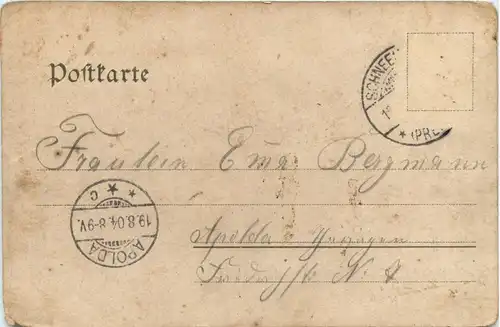 Postkarte
SCHNEE
* (PR
Fräulein Ema Bergmann
* * C
19.8.04. 8-9V.
APOLDA
Apolda
N.